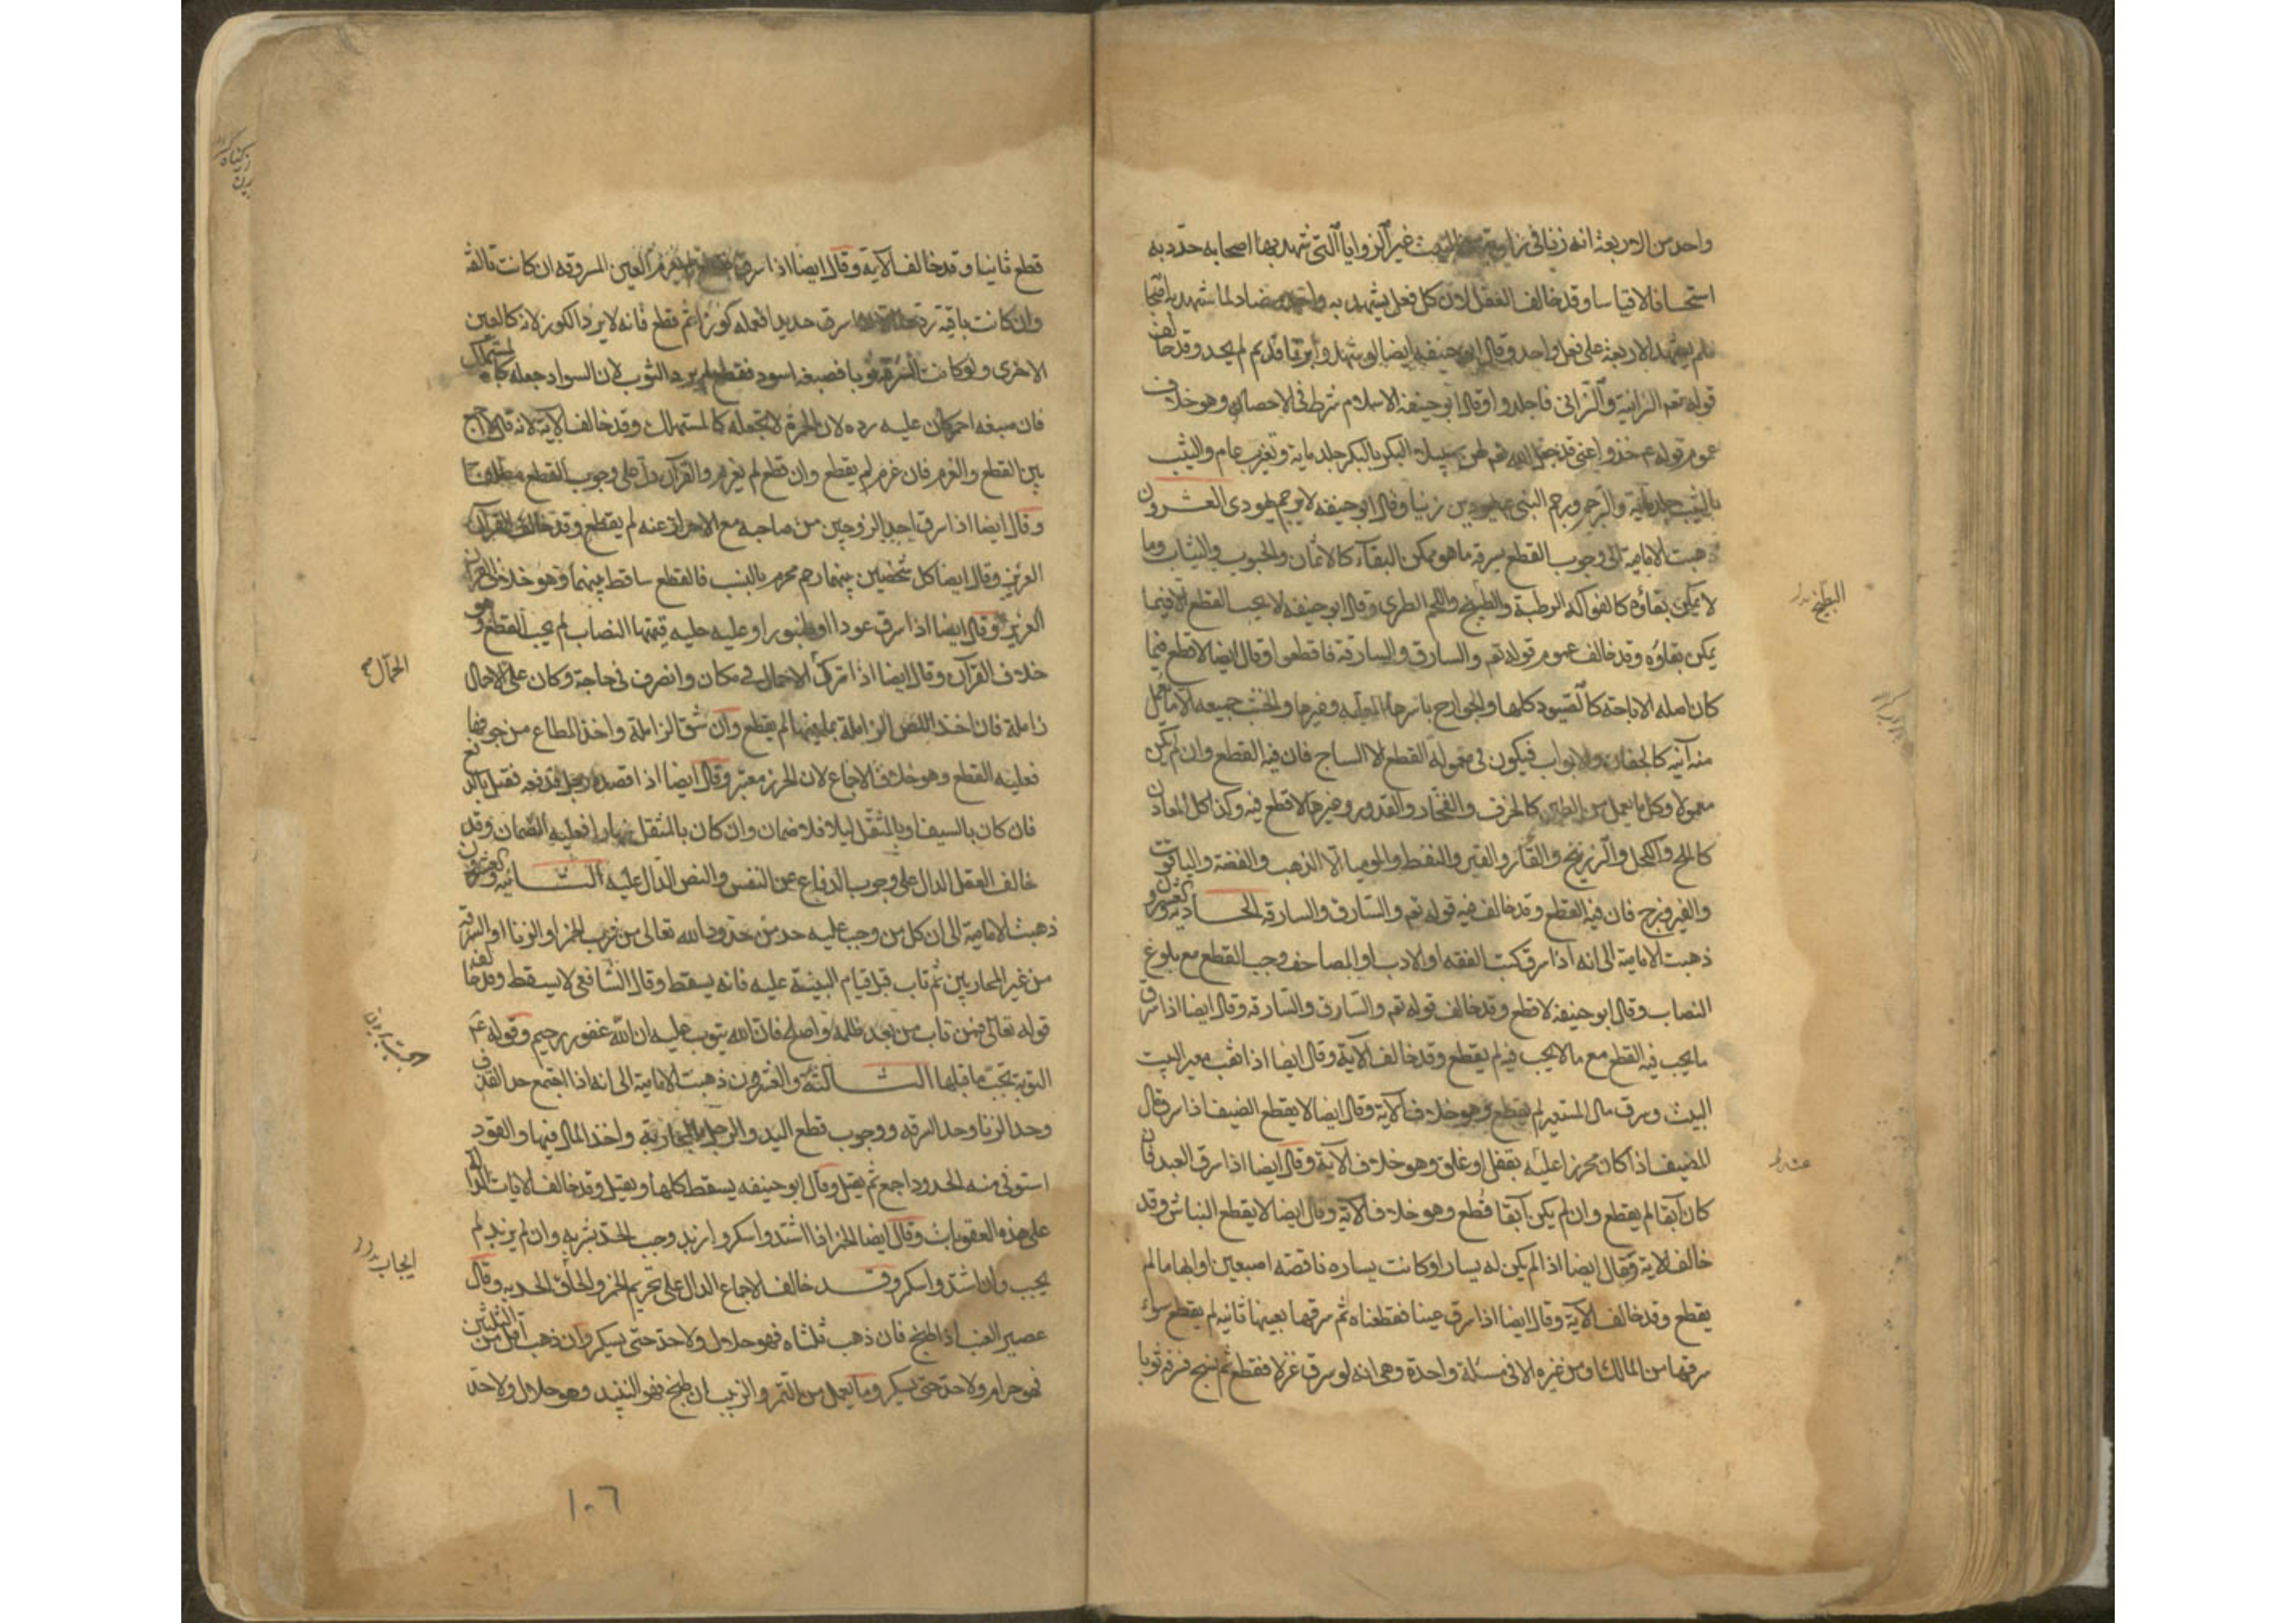 واحد من الاربعة انه زنا في زاوية من البيت غير الزوايا التي شهد بها اصحابه حد به
استحسانا لا قياسا وقد خالف العقل لان كل فعل يشهد به واحد مضاد لما شهد به
فلم يشهد الاربعة على فعل واحد وقال ابو حنيفه ايضا لو شهدوا بزنا قديم لم يحد وقد خالف
قوله تعم الزانية والزاني فاجلدوا وقال ابو حنيفة الاسلام شرط في الاحصان وهو خلاف
عموم قوله عم خذوا عني قد جعل الله لهن سبيلا البكر بالبكر جلد ماية وتغريب عام والثيب
بالثيب جلد ماية والرجم ورجم النبي عم يهوديين زنيا وقال ابو حنيفه لا يرجم يهودي العشرون
ذهبت الامامية الى وجوب القطع بسرقة ما هو ممكن البقاء كالاثمان والحبوب والثياب وما
لا يمكن بقاؤه كالفواكه الرطبة والطبيخ واللحم الطري وقال ابو حنيفه لا يجب القطع الا فيما
يمكن بقاؤه وقد خالف عموم قوله تعم والسارق والسارقة فاقطعوا وقال ايضا لا قطع فيما
كان اصله الاباحة كالصيود كلها والجوارح باسرها المعلمة وغيرها والخشب جميعه الا ما يعمل
منه آنية كالجفان والابواب فيكون في معموله القطع الا الساج فان فيه القطع وان لم يكن
معمولا وكل ما يعمل من الطين كالخزف والفخار والقدور وغيرها لا قطع فيه وكذا كل المعادن
كالملح والكحل والزرنيخ والقار والقير والنفط والموميا الا الذهب والفضة والياقوت
والفيروزج فان فيه القطع وقد خالف فيه قوله تعم والسارق والسارقة الحادية والعشرون
ذهبت الامامية الى انه اذا سرق كتب الفقه او الادب او المصاحف وجب القطع مع بلوغ
النصاب وقال ابو حنيفة لا قطع وقد خالف قوله تعم والسارق والسارقة وقال ايضا اذا سرق
ما يجب فيه القطع مع ما لا يجب فيه لم يقطع وقد خالف الآية وقال ايضا اذا نقب معير البيت
البيت وسرق مال المستعير لم يقطع وهو خلاف الآية وقال ايضا لا يقطع الضيف اذا سرق مال
المضيف اذا كان محرزا عليه بقفل او غلق وهو خلاف الآية وقال ايضا اذا سرق العبد فان
كان آبقا لم يقطع وان لم يكن آبقا قطع وهو خلاف الآية وقال ايضا لا يقطع النباش وقد
خالف الاية وقال ايضا اذا لم يكن له يسار او كانت يساره ناقصه اصبعين او ابهاما لم
يقطع وقد خالف الآية وقال ايضا اذا سرق عينا فقطعناه ثم سرقها بعينها ثانيه لم يقطع سواء
سرقها من المالك او من غيره الا في مسئلة واحدة وهي انه لو سرق غزلا فقطع ثم نسج فسرقه ثوبا
البطيخ
قطع ثانيا وقد خالف الآية وقال ايضا اذا سرق فقطع لم يغرم العين المسروقه ان كانت تالفة
وان كانت باقية ردها سرق حديدا فعمله كوزا ثم قطع فانه لا يرد الكوز لانه كالعين
الاخرى ولو كانت السرقة ثوبا فصبغه اسود فقطع لم يرد الثوب لان السواد جعله كالمستهلك
فان صبغه احمر كان عليه رده لان الحمرة لا تجعله كالمستهلك وقد خالف الآية لانه قال لا اجمع
بين القطع والغرم فان غرم لم يقطع وان قطع لم يغرم والقرآن دل على وجوب القطع مطلقا
وقال ايضا اذا سرق احد الزوجين من صاحبه مع الاحراز عنه لم يقطع وقد خالف القرآن
العزيز وقال ايضا كل شخصين بينهما رحم محرم بالنسب فالقطع ساقط بينهما وهو خلاف القرآن
العزيز وقال ايضا اذا سرق عودا او طنبورا وعليه حليه قيمتها النصاب لم يجب القطع وهو
خلاف القرآن وقال ايضا اذا ترك الاحمال في مكان وانصرف في حاجة وكان على الاحمال
زاملة فان اخذ اللص الزاملة بما فيها لم يقطع وان شق الزاملة واخذ المطاع من جوفها
فعليه القطع وهو خلاف الاجماع لان الحرز معتبر وقال ايضا اذا قصده رجل فدفعه فقتل بالدفع
فان كان بالسيف او بالمثقل ليلا فلا ضمان وان كان بالمثقل نهارا فعليه الضمان وقد
خالف العقل الدال على وجوب الدفاع عن النفس والنص الدال عليه الثانية والعشرون
ذهبت الامامية الى ان كل من وجب عليه حد من حدود الله تعالى من شرب الخمر او الزنا او السرقة
من غير المحاربين ثم تاب قبل قيام البينة عليه فانه يسقط وقال الشافعي لا يسقط وقد خالف
قوله تعالى فمن تاب من بعد ظلمه واصلح فان الله يتوب عليه ان الله غفور رحيم وقوله عم
التوبة تجب ما قبلها الثالثة والعشرون ذهبت الامامية الى انه اذا اجتمع حد القذف
وحد الزنا وحد السرقه ووجوب قطع اليد والرجل بالمحاربة واخذ المال فيها والقود
استوفي منه الحدود اجمع ثم يقتل وقال ابو حنيفه يسقط كلها ويقتل وقد خالف الايات الدالة
على هذه العقوبات وقال ايضا الخمر اذا اشتد واسكر وازبد وجب الحد بشربه وان لم يزبد لم
يجب وان اشتد واسكر وقد خالف الاجماع الدال على تحريم الخمر والحاق الحد به وقال
عصير العنب اذا طبخ فان ذهب ثلثاه فهو حلال ولا حد حتى يسكر وان ذهب اقل من الثلثين
فهو حرام ولا حد حتى يسكر وما يعمل من التمر والزبيب ان طبخ فهو النبيذ وهو حلال ولا حد
الحمال
١٠٦